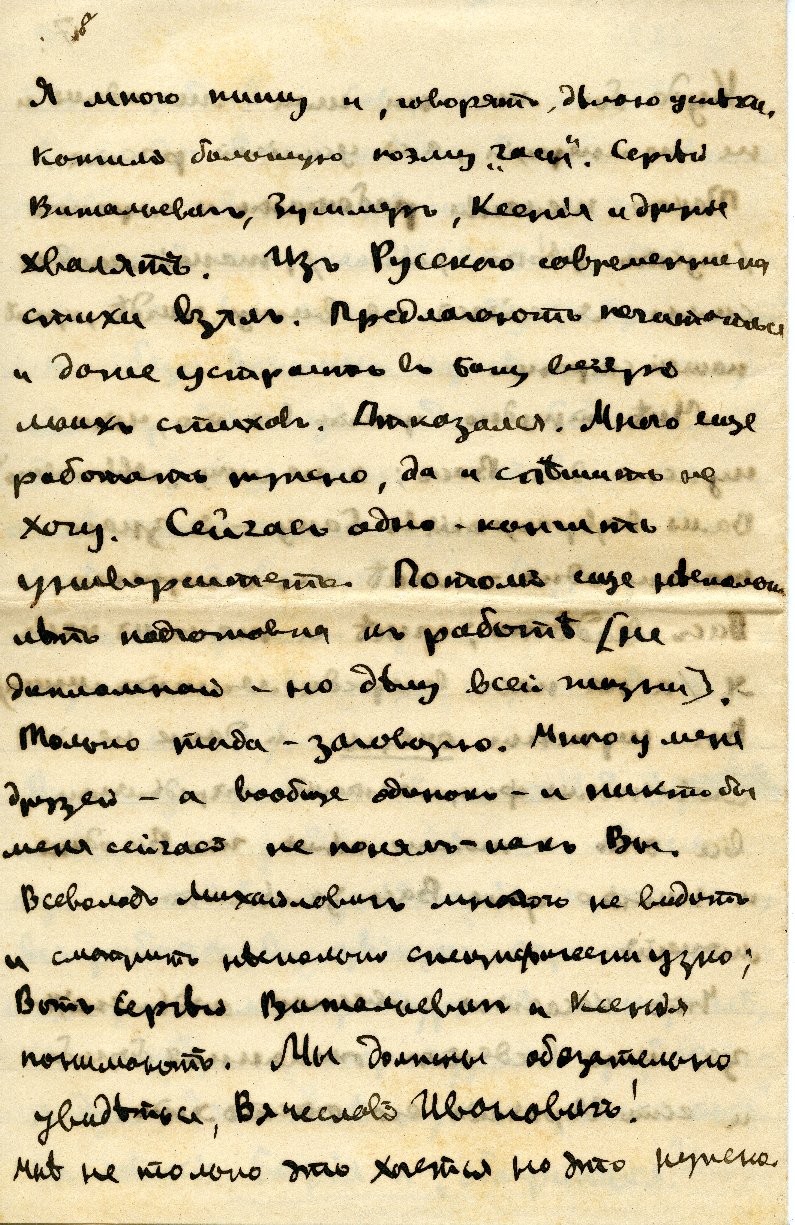 Я много пишу и, говорятъ, дѣлаю успѣхи.
Кончилъ большую поэму „Часы“. Сергѣй
Витальевичъ, Зуммеръ, Ксенія и другіе
хвалятъ. Изъ Русскаго современника
стихи взялъ. Предлагаютъ печататься
и даже устроить въ Баку вечеръ
моихъ стиховъ. Отказался. Много еще
работать нужно, да и спѣшить не
хочу. Сейчасъ одно - кончить
университетъ. Потомъ еще нѣсколько
лѣтъ подготовка къ работѣ (не
дипломной - но дѣлу всей жизни).
Только тогда - заговорю. Много у меня
друзей - а вообще одинокъ - и никто бы
меня сейчасъ не понялъ - какъ Вы.
Всеволодъ Михайловичъ многого не видитъ
и смотритъ нѣсколько специфически узко;
Вотъ Сергѣй Витальевичъ и Ксенія
понимаютъ. Мы должны обязательно
увидѣться, Вячеславъ Ивановичъ!
Мнѣ не только это хочется но это нужно.